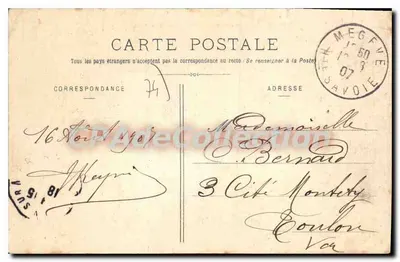 CARTE POSTALE
Tous les pays étrangers n'acceptent pas la correspondance au recto (Se renseigner à la Poste)
CORRESPONDANCE
ADRESSE
74
MEGÈVE
Hte SAVOIE
07
16 Août 1907
Mademoiselle
E. Bernard
3 Cité Montéty
Toulon
Var
18
15